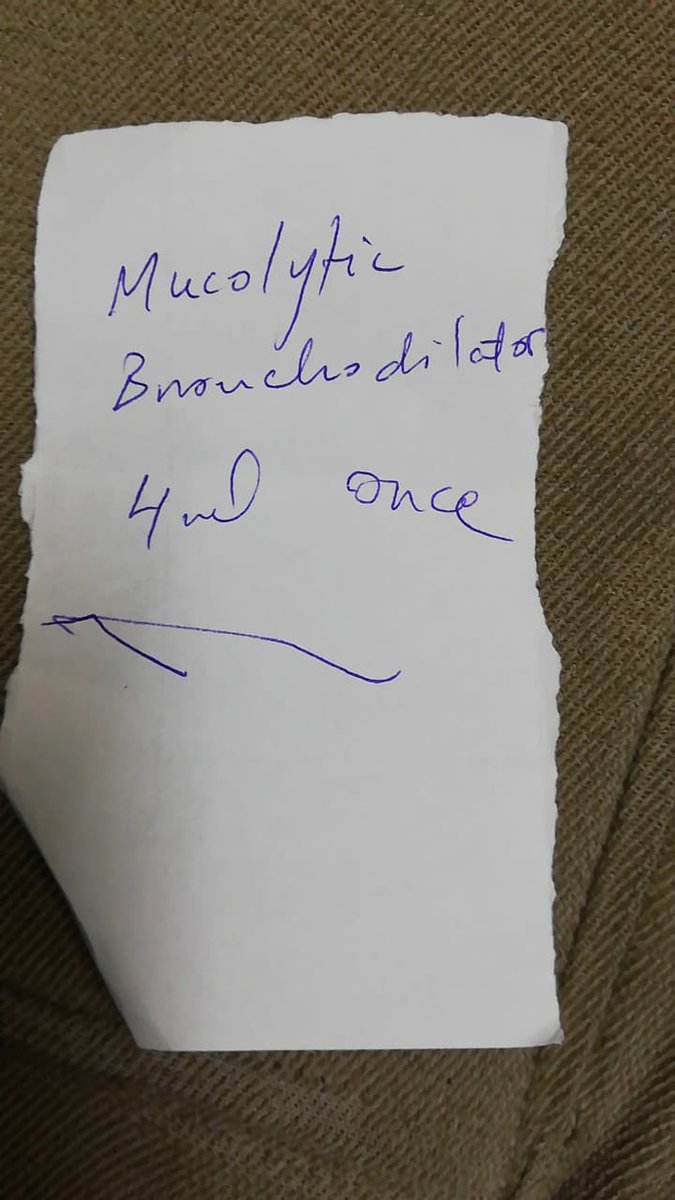 Mucolytic
Bronchodilator
4ml once